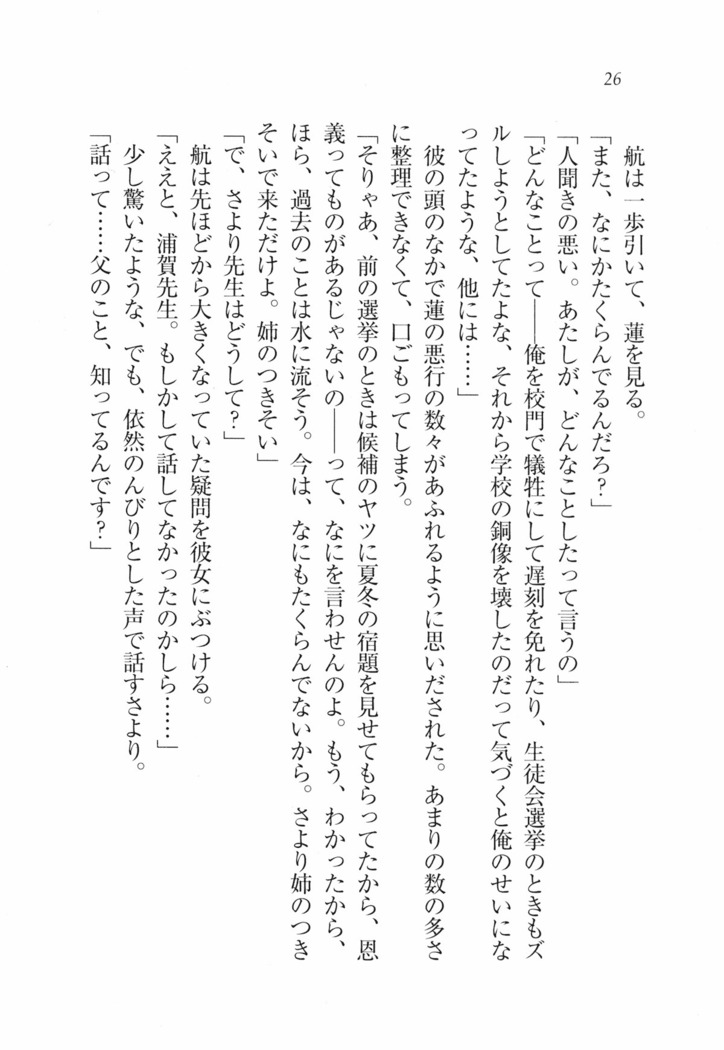 26
航は一歩引いて、蓮を見る。
「また、なにかたくらんでるんだろ？」
「人聞きの悪い。あたしが、どんなことしたって言うの」
「どんなことって――俺を校門で犠牲にして遅刻を免れたり、生徒会選挙のときもズ
ルしようとしてたよな、それから学校の銅像を壊したのだって気づくと俺のせいにな
ってたような、他には……」
彼の頭のなかで蓮の悪行の数々があふれるように思いだされた。あまりの数の多さ
に整理できなくて、口ごもってしまう。
「そりゃあ、前の選挙のときは候補のヤツに夏冬の宿題を見せてもらってたから、恩
義ってものがあるじゃないの――って、なにを言わせんのよ。もう、わかったから、
ほら、過去のことは水に流そう。今は、なにもたくらんでないから。さより姉のつき
そいで来ただけよ。姉のつきそい」
「で、さより先生はどうして？」
航は先ほどから大きくなっていた疑問を彼女にぶつける。
「ええと、浦賀先生。もしかして話してなかったのかしら……」
少し驚いたような、でも、依然のんびりとした声で話すさより。
「話って……父のこと、知ってるんです？」